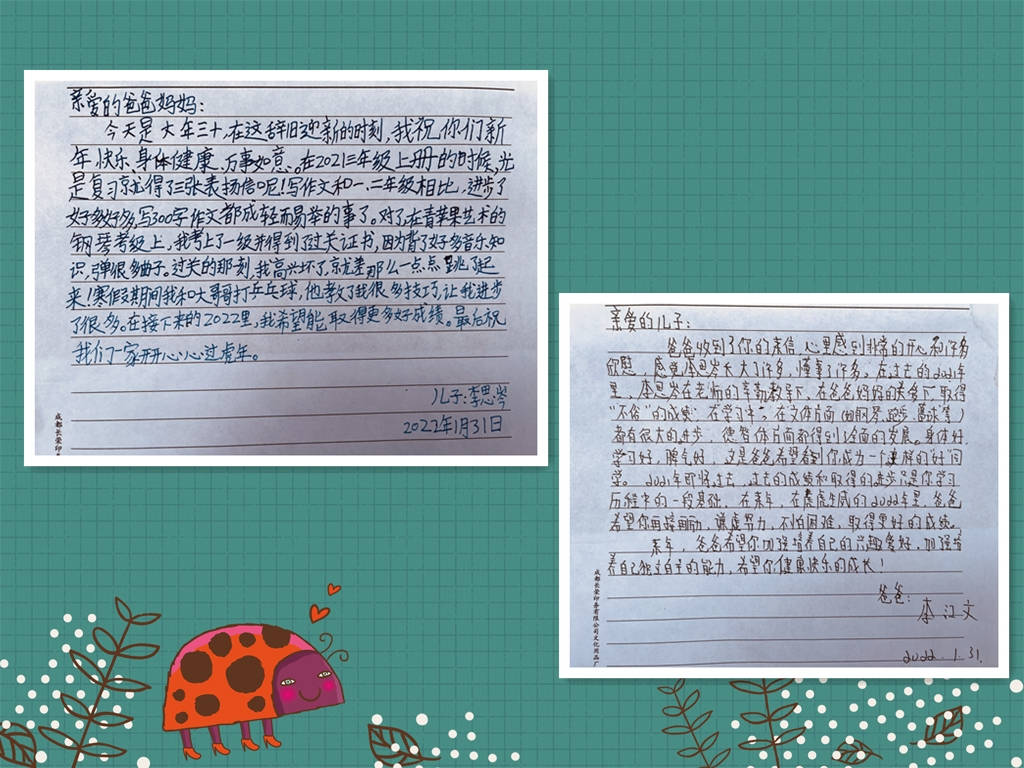 亲爱的爸爸妈妈：
今天是大年三十，在这辞旧迎新的时刻，我祝你们新
年快乐、身体健康、万事如意。在2021三年级上册的时候，光
是复习就得了三张表扬信呢！写作文和一、二年级相比，进步了
好多好多，写300字作文都成轻而易举的事了。对了，在青苹果艺术的
钢琴考级上，我考上了一级并得到了过关证书，因为背了好多音乐知
识，弹很多曲子。过关的那一刻，我高兴坏了，就差那么一点点跳了起
来！寒假期间我和大哥哥打乒乓球，他教了我很多技巧，让我进步
了很多。在接下来的2022里，我希望能取得更多好成绩。最后祝
我们一家开开心心过虎年。
儿子：李思岑
2022年1月31日
成都长荣印
亲爱的儿子：
爸爸收到了你的来信，心里感到非常的开心和许多
欣慰，感觉李思岑长大了许多，懂事了许多。在过去的2021年
里，李思岑在老师的辛勤教导下，在爸爸妈妈的关爱下，取得
"不俗"的成绩。在学习中、在文体方面（如钢琴、跑步、篮球等）
都有很大的进步，德智体方面都得到了全面的发展。身体好，
学习好，脾气好，这是爸爸希望看到你成为一个这样的好同
学。2021年即将过去，过去的成绩和取得的进步只是你学习
历程中的一段基础，在来年，在虎虎生威的2022年里，爸爸
希望你再接再励，谦虚努力，不怕困难，取得更好的成绩。
来年，爸爸希望你加强培养自己的兴趣爱好，加强培
养自己独立自主的能力，希望你健康快乐的成长！
爸爸：
李江文
2022.1.31.
成都长荣印务有限公司文化用品厂